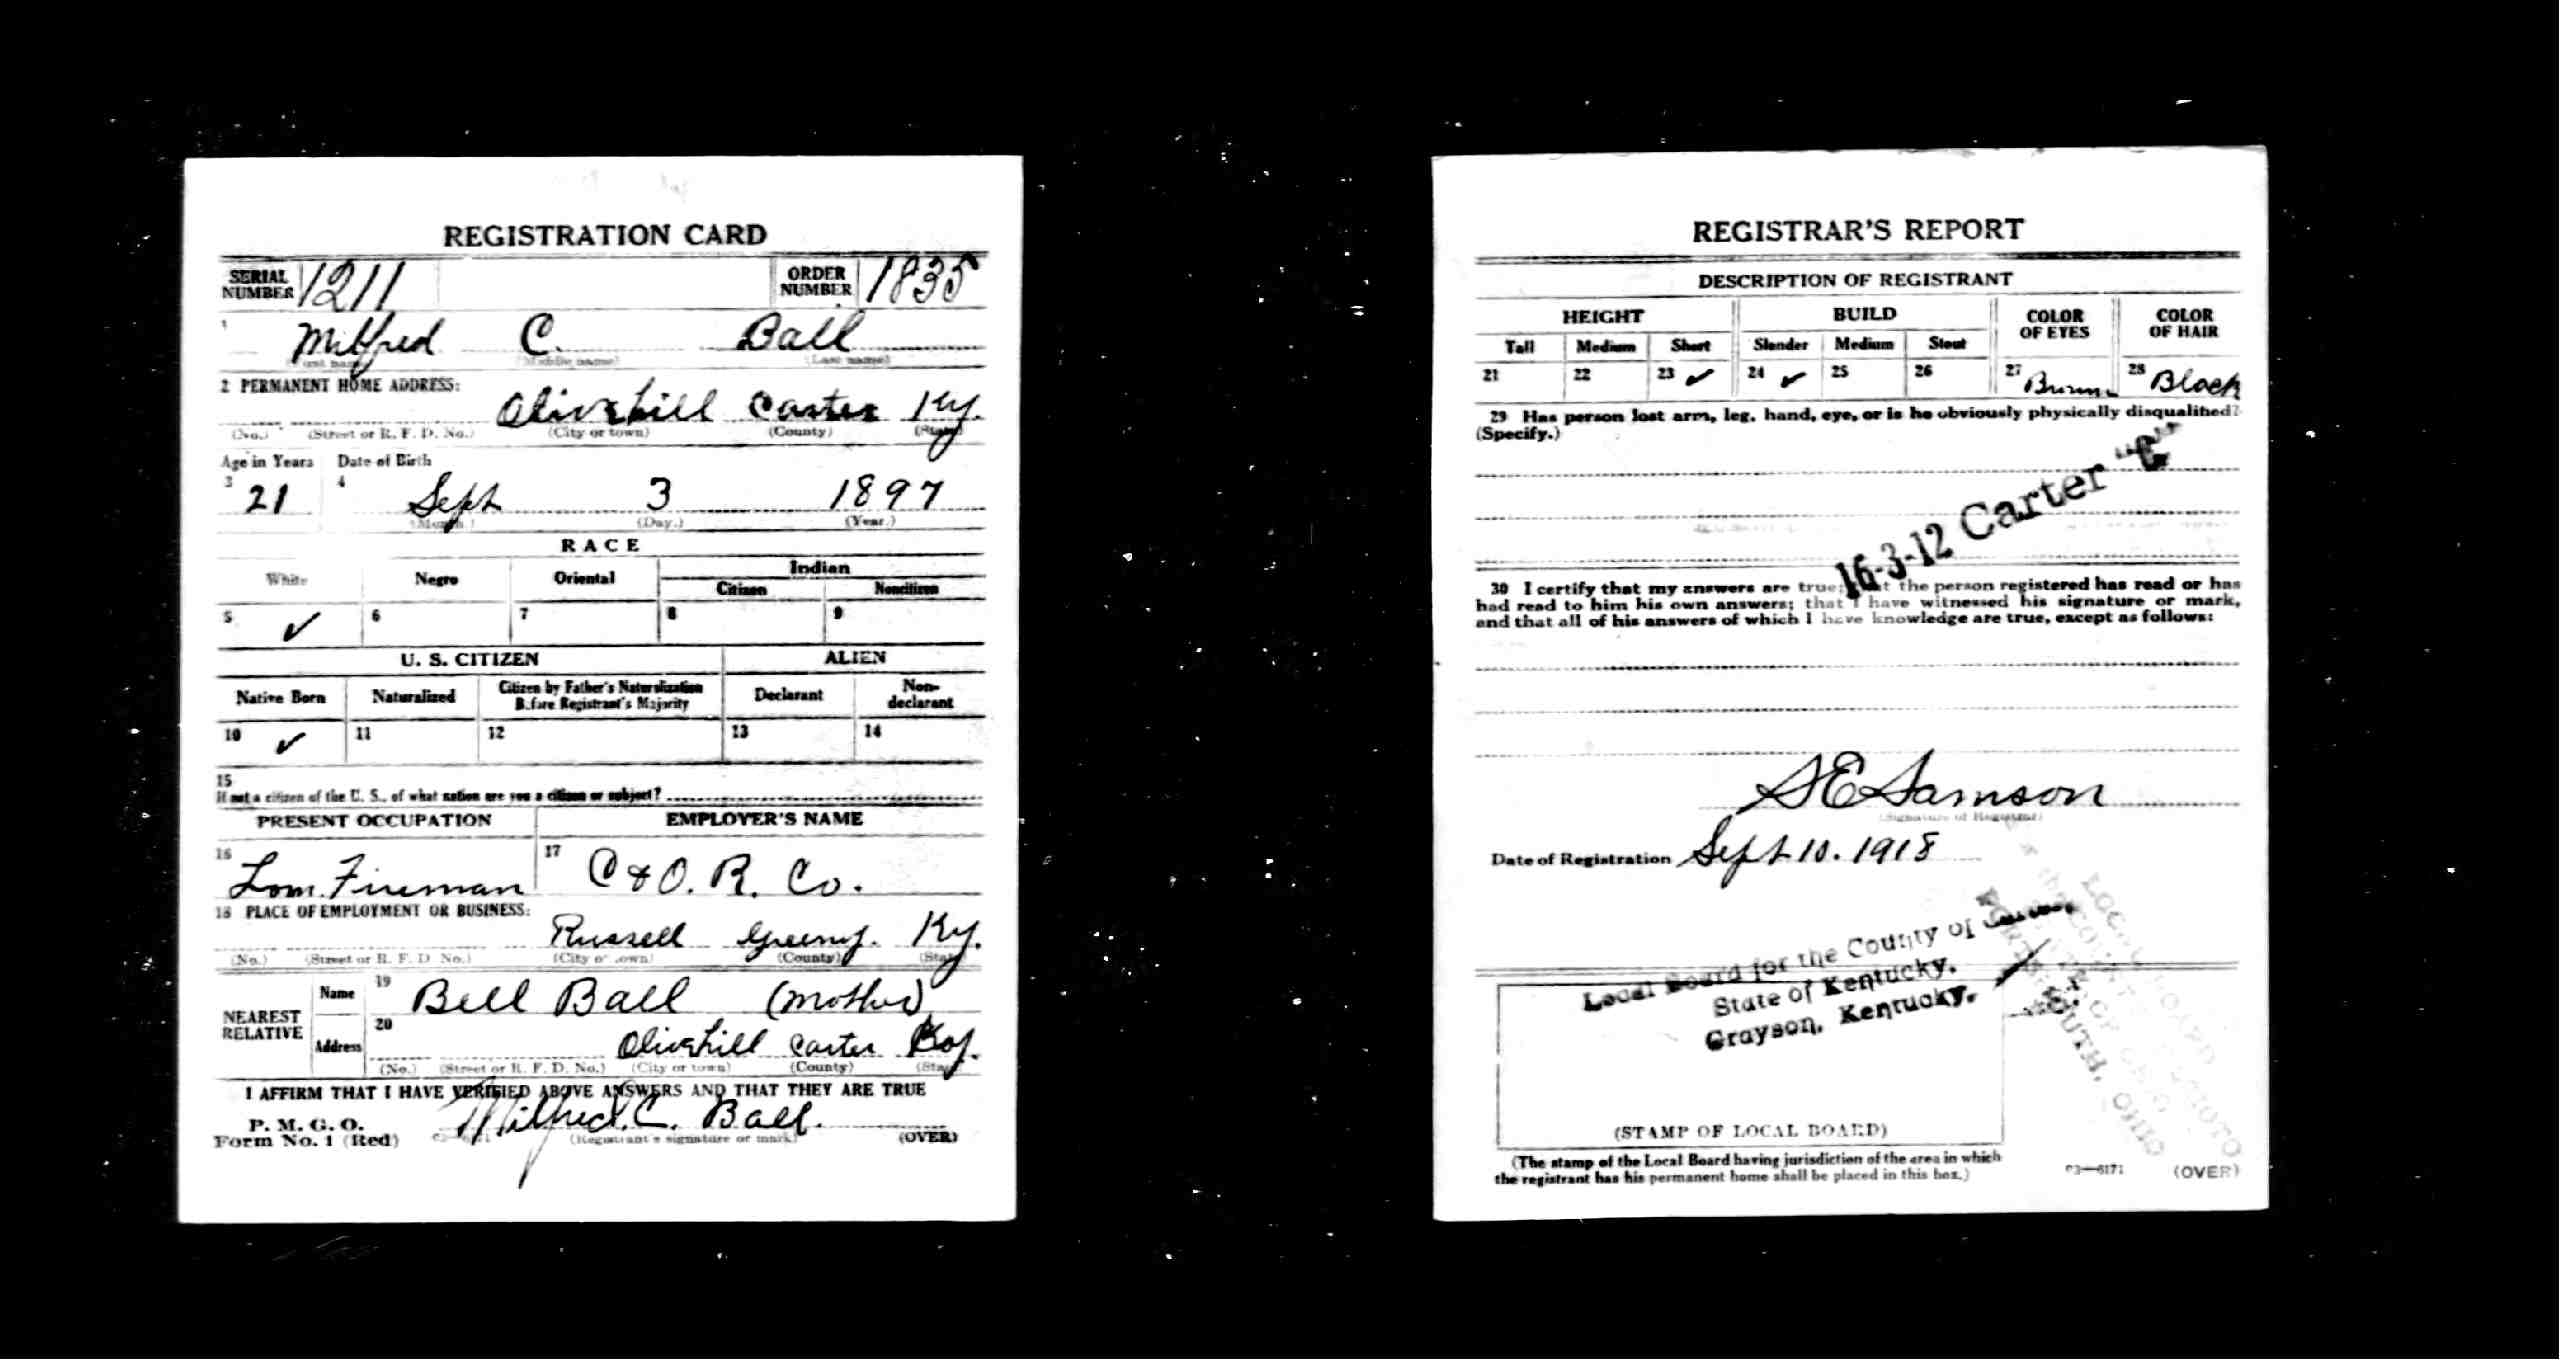 REGISTRATION CARD
SERIAL NUMBER 1211 ORDER NUMBER 1835
1 Milford C. Ball
(First name) (Middle name) (Last name)
2 PERMANENT HOME ADDRESS:
Olivehill Carter Ky.
(No.) (Street or R. F. D. No.) (City or town) (County) (State)
Age in Years Date of Birth
3 21 4 Sept 3 1897
(Month.) (Day.) (Year.)
RACE
White Negro Oriental Indian
Citizen Noncitizen
5 ✓ 6 7 8 9
U. S. CITIZEN ALIEN
Native Born Naturalized Citizen by Father's Naturalization Before Registrant's Majority Declarant Non-declarant
10 ✓ 11 12 13 14
15
If not a citizen of the U. S., of what nation are you a citizen or subject?
PRESENT OCCUPATION EMPLOYER'S NAME
16 Lom. Fireman 17 C & O. R. Co.
18 PLACE OF EMPLOYMENT OR BUSINESS:
Russell Greenup. Ky.
(No.) (Street or R. F. D. No.) (City or town) (County) (State)
NEAREST RELATIVE Name 19 Bell Ball (Mother)
Address 20 Olivehill Carter Ky.
(No.) (Street or R. F. D. No.) (City or town) (County) (State)
I AFFIRM THAT I HAVE VERIFIED ABOVE ANSWERS AND THAT THEY ARE TRUE
P. M. G. O.
Form No. 1 (Red) Milfred. C. Ball.
(Registrant's signature or mark) (OVER)
REGISTRAR'S REPORT
DESCRIPTION OF REGISTRANT
HEIGHT BUILD COLOR OF EYES COLOR OF HAIR
Tall Medium Short Slender Medium Stout
21 22 23 ✓ 24 ✓ 25 26 27 Brown 28 Black
29 Has person lost arm, leg, hand, eye, or is he obviously physically disqualified?
(Specify.)
16-3-12 Carter "C"
30 I certify that my answers are true; that the person registered has read or has
had read to him his own answers; that I have witnessed his signature or mark,
and that all of his answers of which I have knowledge are true, except as follows:
S E Samson
(Signature of Registrar)
Date of Registration Sept 10. 1918
Local Board for the County of
State of Kentucky.
Grayson, Kentucky.
LOCAL BOARD
OHIO
(STAMP OF LOCAL BOARD)
(The stamp of the Local Board having jurisdiction of the area in which
the registrant has his permanent home shall be placed in this box.)
03—6171 (OVER)